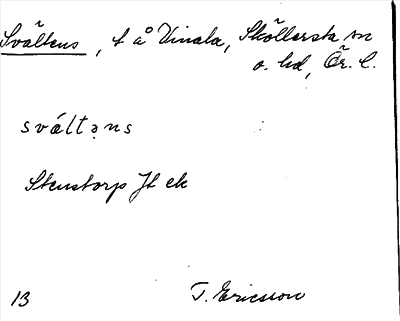 Svältens, t å Vinala, Sköllersta sn
o. hd, Ör. l.
sváltəns
Stenstorp Jt ek
13 T. Ericsson